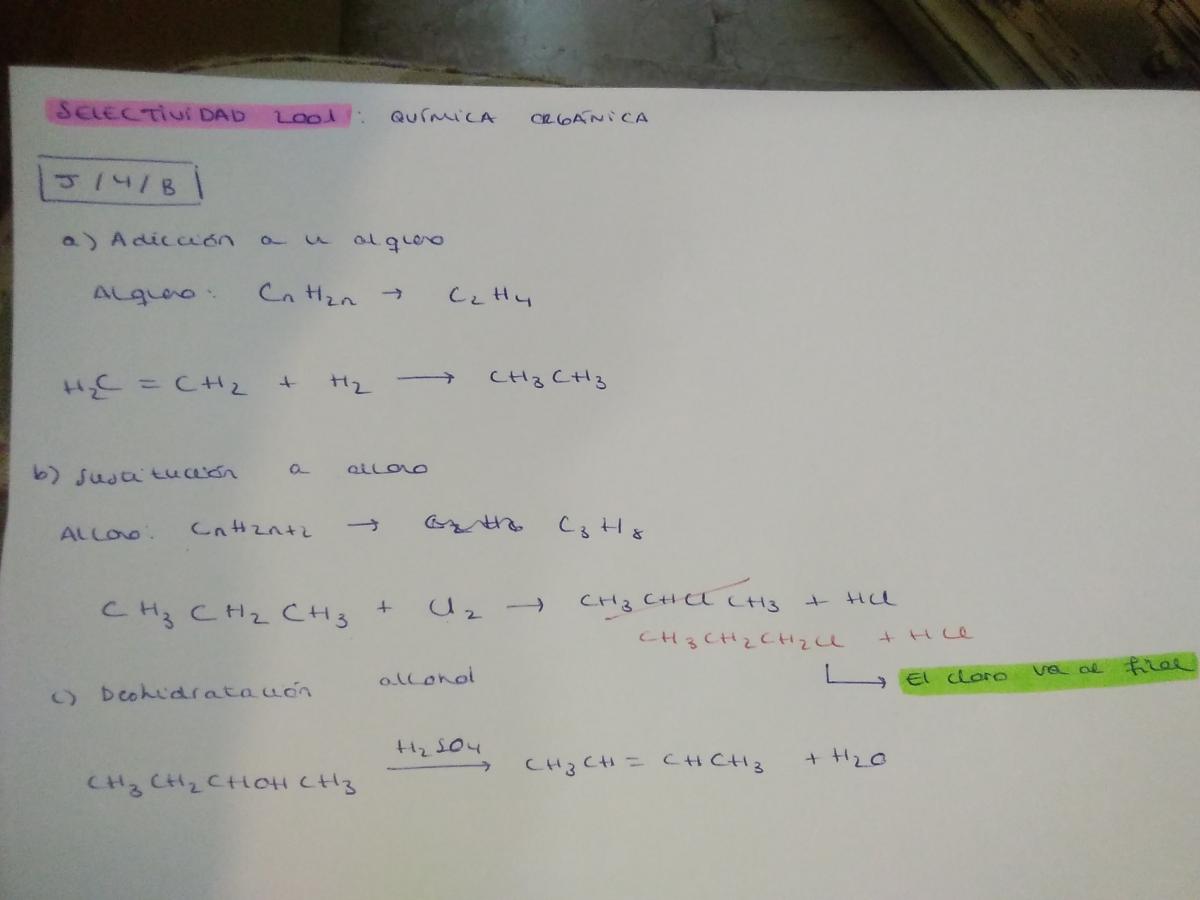 SELECTIVIDAD 2001: QUÍMICA ORGÁNICA
J/4/B
a) Adicción a u alqueno
Alqueno: CnH2n → C2H4
H2C = CH2 + H2 → CH3CH3
b) Sustitución a alcano
Alcano: CnH2n+2 → C3H8
CH3CH2CH3 + Cl2 → CH3CHClCH3 + HCl
CH3CH2CH2Cl + HCl
El cloro va al final
c) Deshidratación alcohol
CH3CH2CHOHCH3 H2SO4 → CH3CH = CHCH3 + H2O